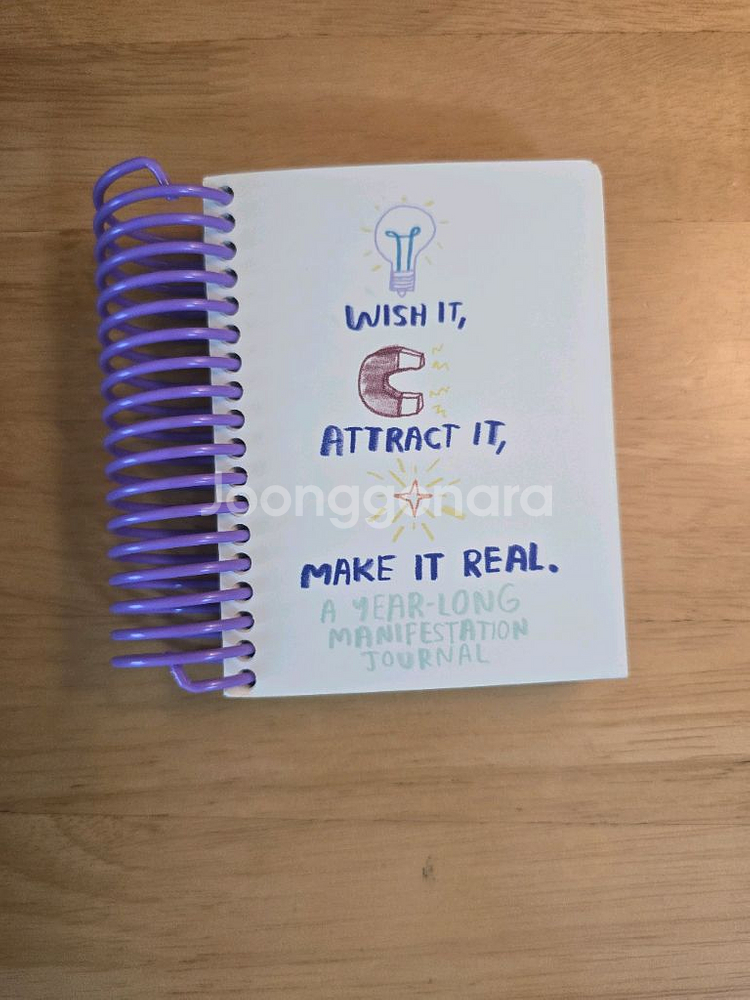 WISH IT,
ATTRACT IT,
Joonggonara
MAKE IT REAL.
A YEAR-LONG
MANIFESTATION
JOURNAL